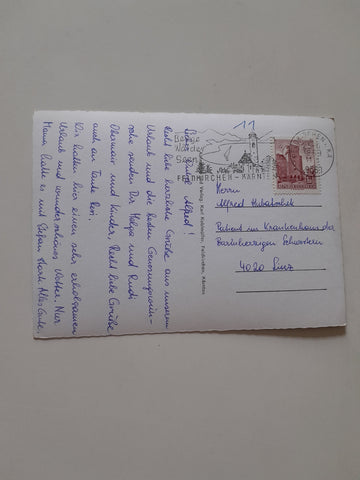 11
Baden
Wandern
Seen
FELDKIRCHEN - KÄRNTEN
Lieber Alfred!
Recht liebe herzliche Grüße aus unserem
Urlaub und die besten Genesungswün-
sche senden Dir Helga und Rudi
Obermair und Kinder. Recht liebe Grüße
auch an Tante Resi.
Wir hatten hier einen sehr erholsamen
Urlaub und wunderschönes Wetter. Nur
Mama hatte es mit Stefan stark. Alles Gute.
Verlag Karl Feldkirchen, Kärnten
Herrn
Alfred
Patient im Krankenhaus der
Barmherzigen Schwestern
4020 Linz